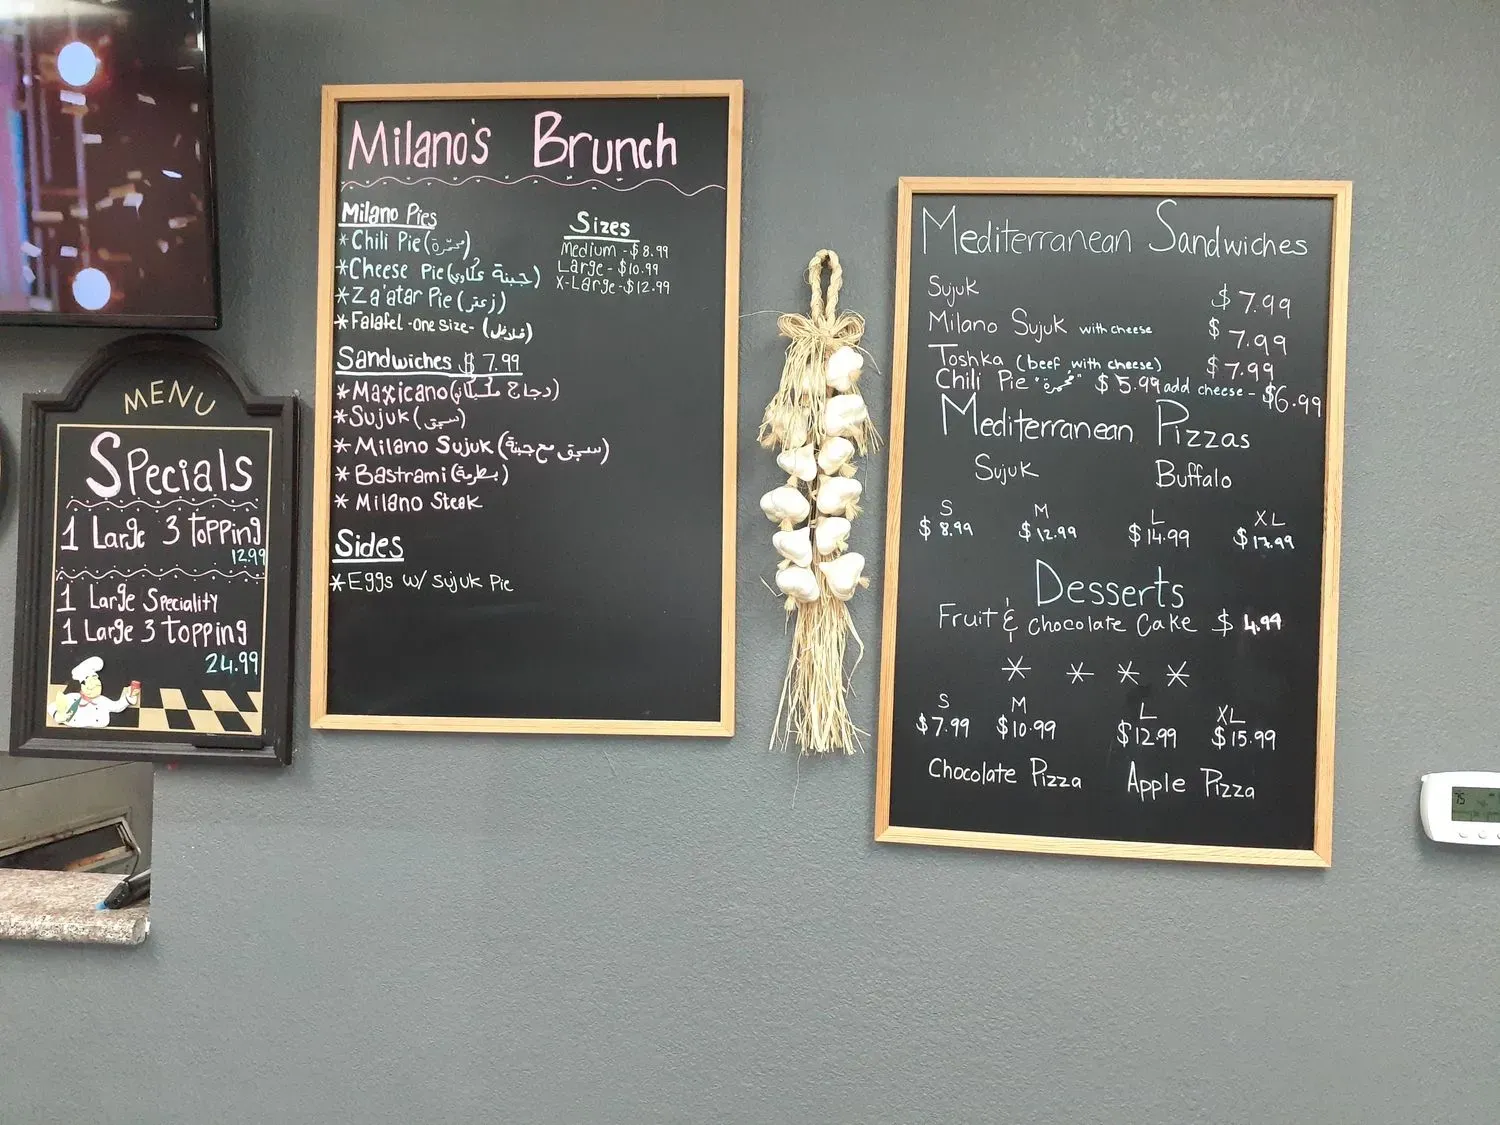 MENU
Specials
1 Large 3 topping
12.99
1 Large Speciality
1 Large 3 topping
24.99
Milano's Brunch
Milano Pies
* Chili Pie (محمّرة)
* Cheese Pie (جبنة عكاوي)
* Za'atar Pie (زعتر)
* Falafel -one size- (فلافل)
Sizes
Medium - $8.99
Large - $10.99
X-Large - $12.99
Sandwiches $ 7.99
* Maxicano (دجاج مكسيكان)
* Sujuk (سجق)
* Milano Sujuk (سجق مع جبنة)
* Bastrami (بسطرمة)
* Milano Steak
Sides
* Eggs w/ Sujuk Pie
Mediterranean Sandwiches
Sujuk $ 7.99
Milano Sujuk with cheese $ 7.99
Toshka (beef with cheese) $ 7.99
Chili Pie "محمرة" $ 5.99 add cheese - $6.99
Mediterranean Pizzas
Sujuk Buffalo
S M L XL
$ 8.99 $ 12.99 $ 14.99 $ 17.99
Desserts
Fruit & chocolate Cake $ 4.99
* * * *
S M L XL
$7.99 $10.99 $12.99 $15.99
Chocolate Pizza Apple Pizza
75